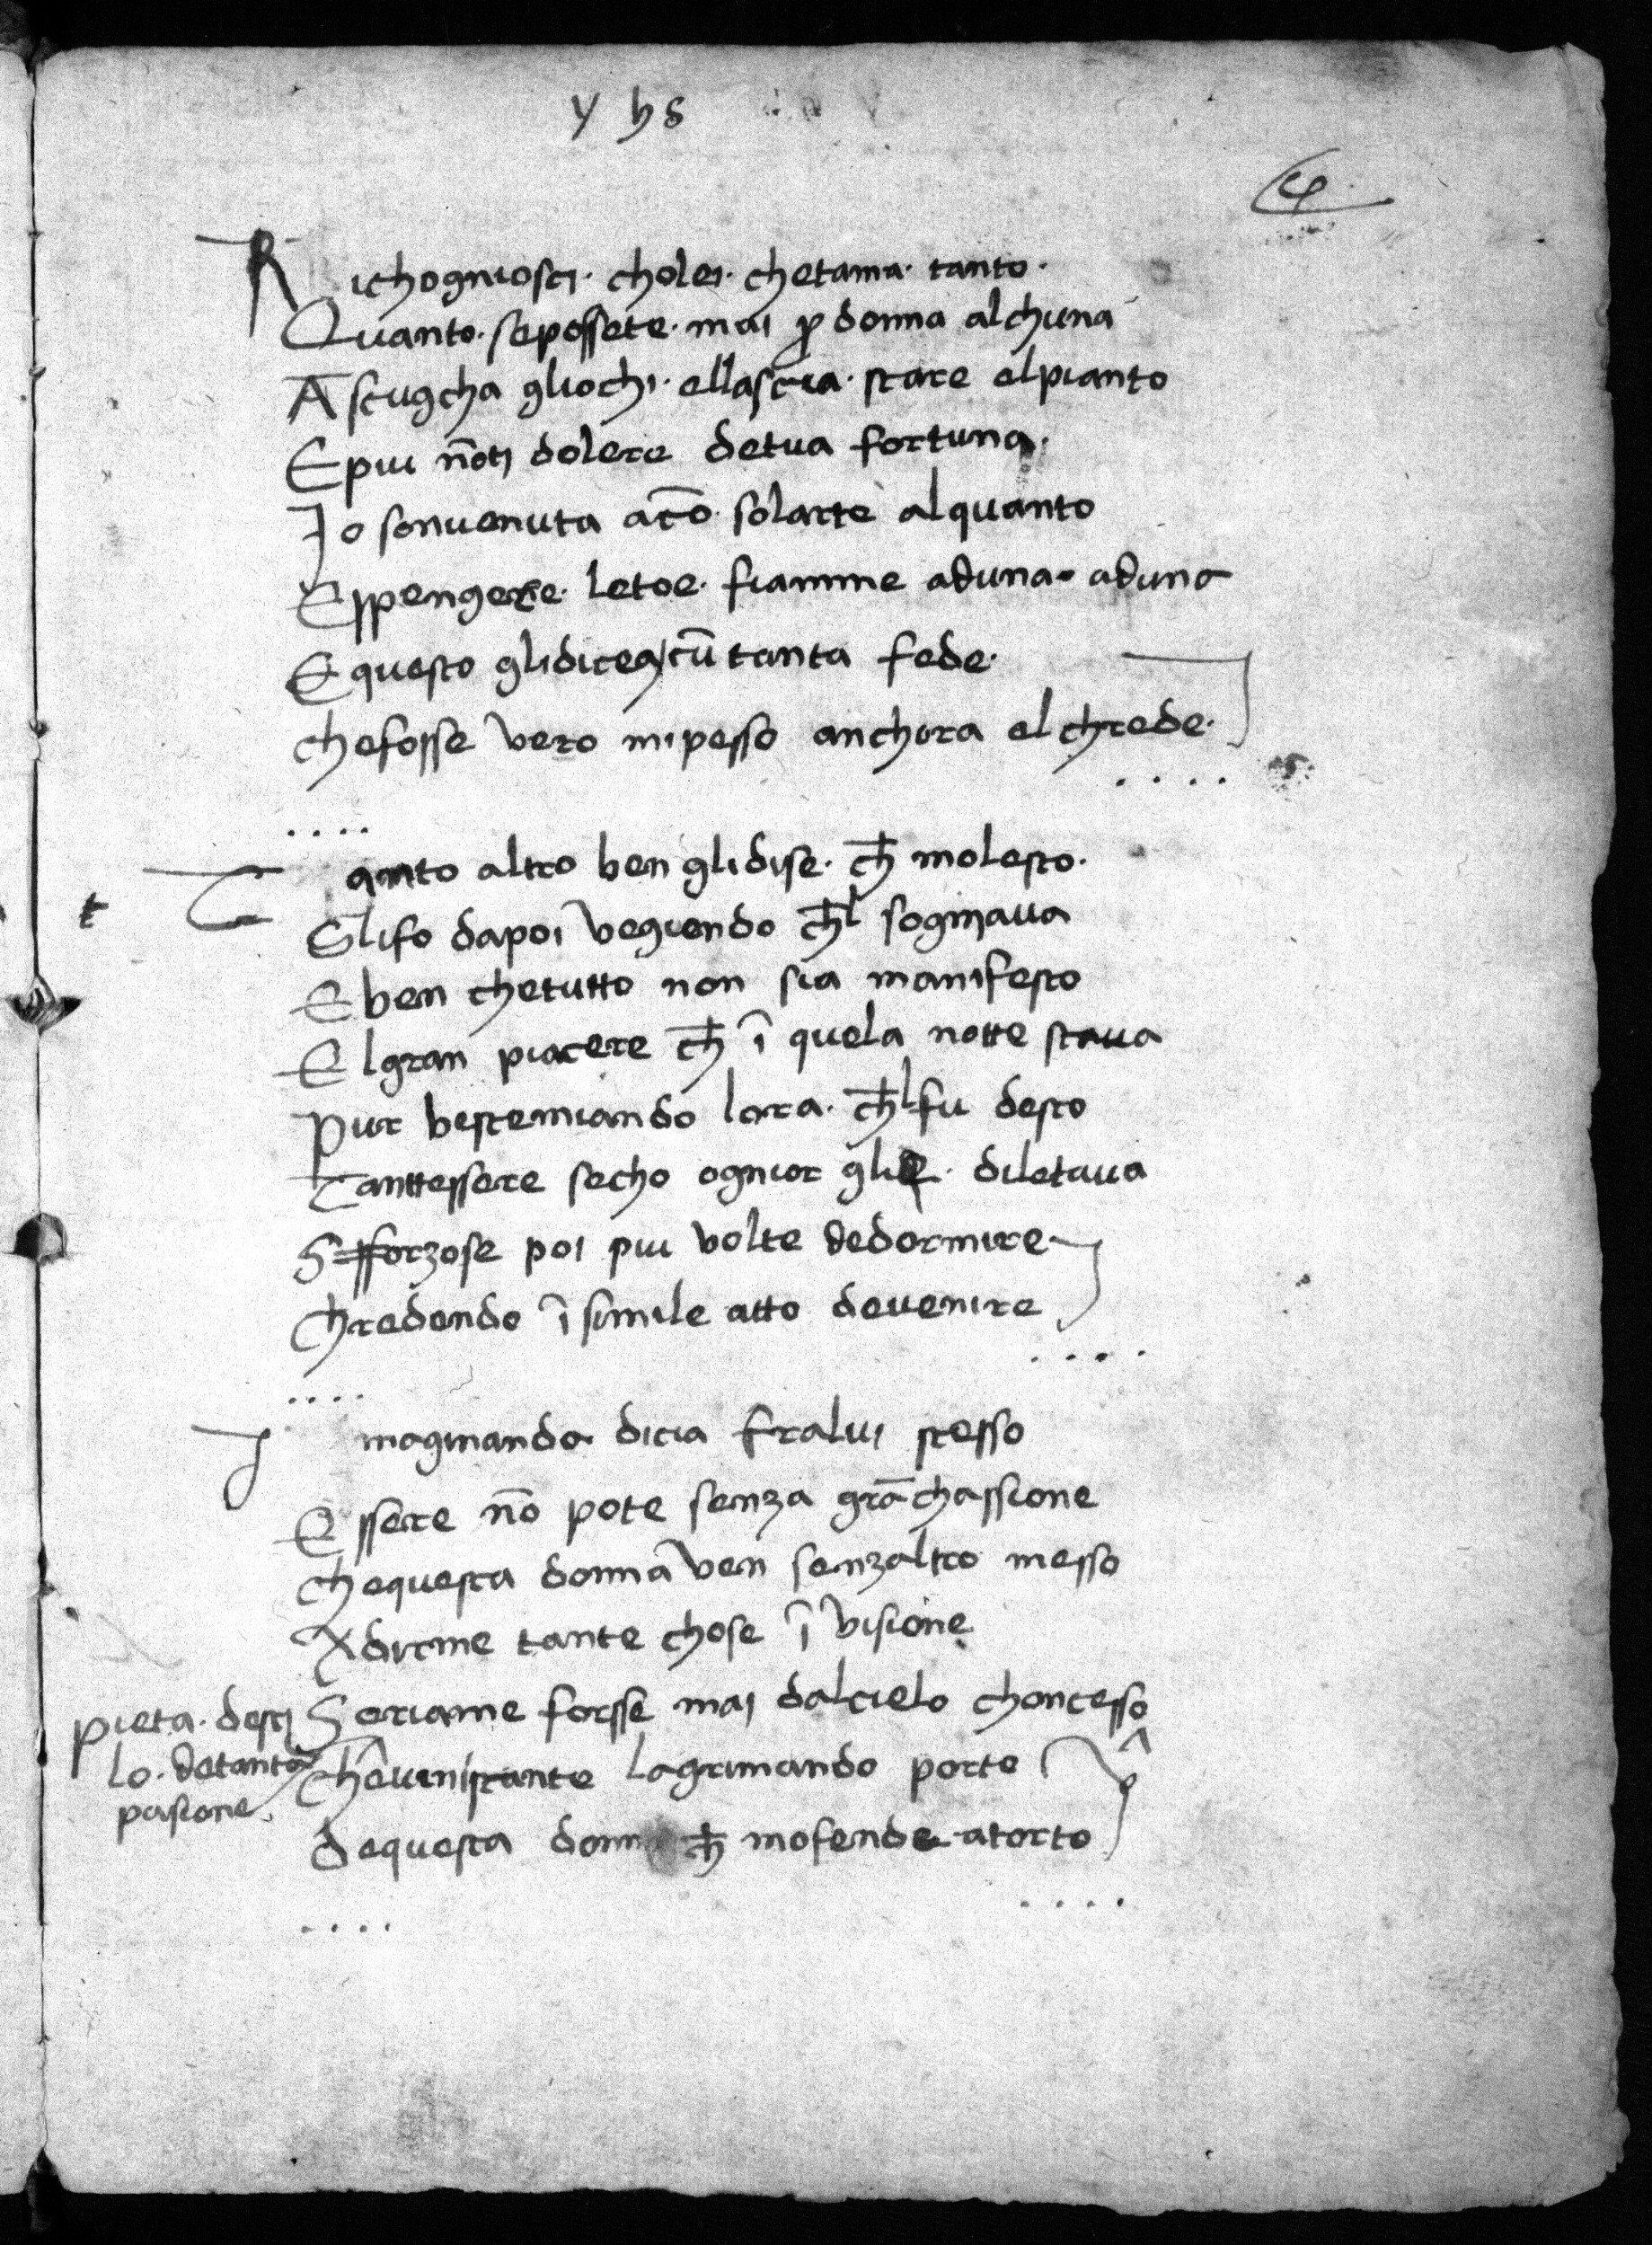 y hs
R ichogniosci · cholei · chetama · tanto ·
Quanto · sepossete · mai ꝑ donna alchuna
Asciugcha gliochi · ellascia · stare elpianto
Epiu nōti dolere detua fortuna ·
Io sonuenuta acō solarte alquanto
Esspengere · letoe · fiamme aduna · aduna
Equesto glidicea cū tanta fede ·
chefosse vero mi pesso anchora el chrede ·
....
....
T anto altro ben glidise · ch̄ molesto ·
t
Glifo dapoi vegiendo ch̄l sogniaua
E ben chetutto non sia manifesto
Elgran piacere ch̄ ī quela notte staua
Pur bestemiando lora · ch̄l fu desto
Tanttessere secho ognior glie · diletaua
Sfforzose poi piu volte dedormire
Chredendo ī simile atto deuenire
....
....
J maginando dicia fralui stesso
Essere nō pote senza grā chassione
chequesta donna ven senzaltro messo
Adirme tante chose ī visione
Seriame forsse mai dalcielo choncesso
pieta · desti
lo · detanta
pasione
lagrimando porto
dequesta ch̄ mofende atorto
....
....